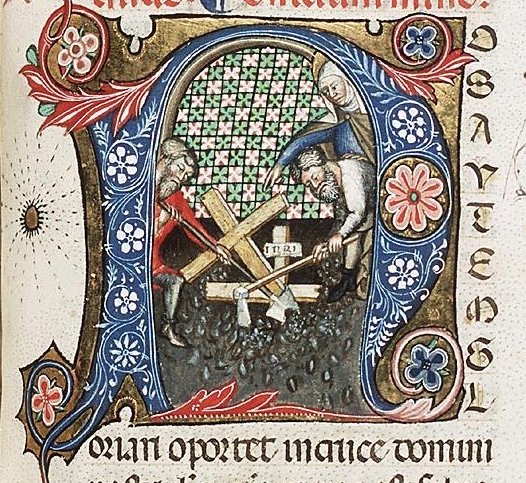 INRI
O
S
A
V
T
E
M
G
L
oriari oportet in cruce domini